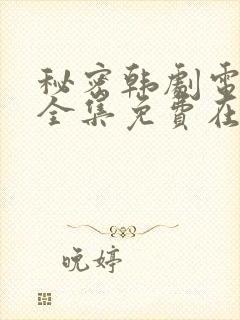 秘密韩剧电
全集免費在
晚婷